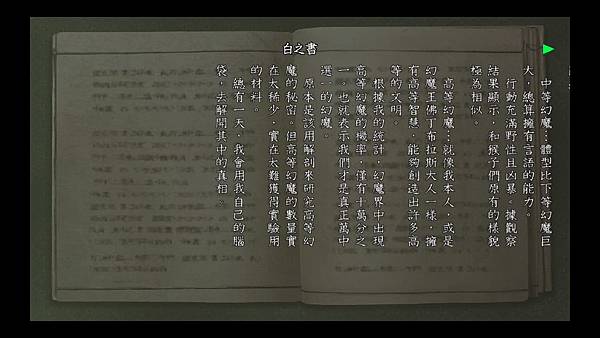 白之書
中等幻魔：體型比下等幻魔巨
大，總算擁有言語的能力。
行動充滿野性且凶暴。據觀察
結果顯示，和猴子們原有的樣貌
極為相似。
高等幻魔：就像我本人，或是
幻魔王佛丁布拉斯大人一樣，擁
有高等智慧，能夠創造出許多高
等的文明。
根據我的統計，幻魔界中出現
高等幻魔的機率，僅有十萬分之
一。也就表示我們才是真正萬中
選一的幻魔。
原本是該用解剖來研究高等幻
魔的秘密。但高等幻魔的數量實
在太稀少，實在太難獲得實驗用
的材料。
總有一天，我會用我自己的腦
袋，去解開其中的真相。